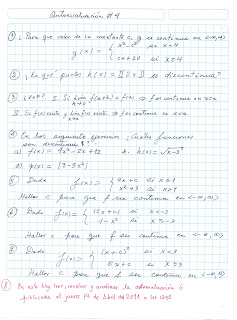 Autoevaluación #4
① ¿Para que valor de la constante c, g es continua en (-∞,∞)
g(x) = { x² - c² si x < 4
cx + 20 si x ≥ 4
② ¿En qué puntos h(x) = [[2x]] es discontinua?
③ ¿V o F? I. Si lim f(a+h) = f(a) ⇒ f es continua en x=a
h→0
II. Si f(x) existe y lim f(x) existe ⇒ f es continua en x=a.
x→a
④ En los siguientes ejercicios ¿Cuáles funciones
son continuas?
a) f(x) = 9x² - 2x + 12 b. h(x) = √x-3
c) p(x) = |3-5x²|
⑤ Dada f(x) = { 2x + c si x ≤ 1
x² + 3 si x > 1
Hallar c para que f sea continua en (-∞,∞)
⑥ Dada f(x) = { 12x + c si x < -3
1 - x² si x ≥ -3
Hallar c para que f sea continua en (-∞,∞)
⑦ Dada f(x) = { (x+c)² si x < 3
5x + c si x ≥ 3
Hallar c para que f sea continua en (-∞,∞)
⑧ En este blog leer, resolver y analizar la autoevaluación 6
publicada el jueves 14 de Abril de 2011